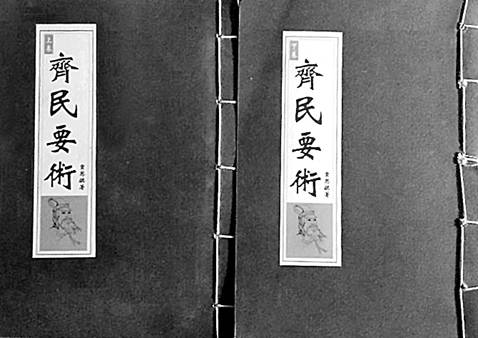 上卷
齊民要術
賈思勰著
下卷
齊民要術
賈思勰著